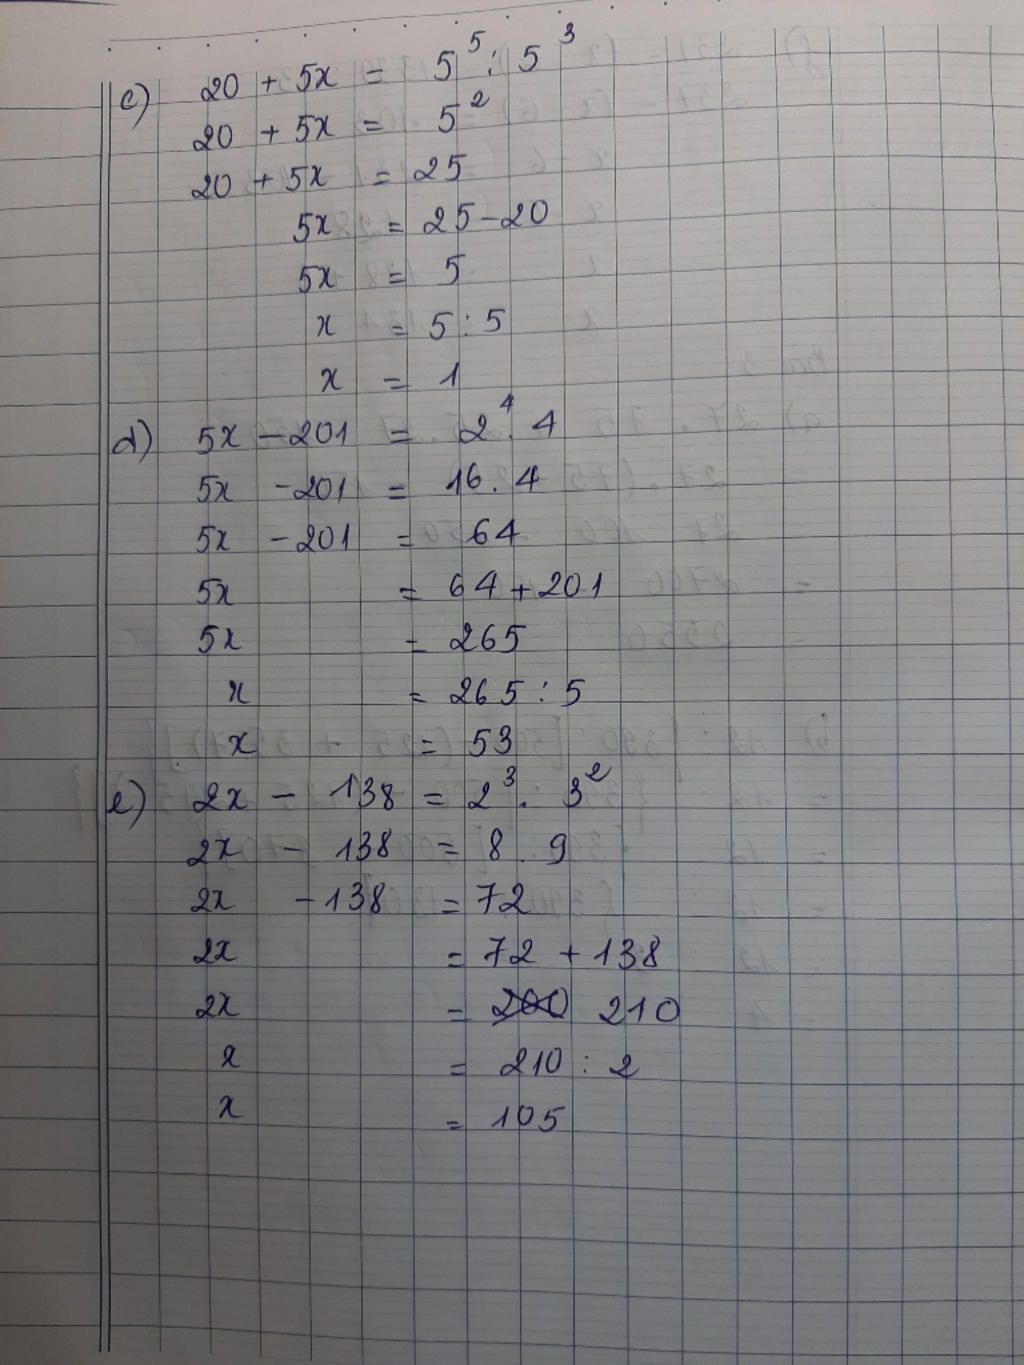 c) 20 + 5x = 5⁵ : 5³
20 + 5x = 5²
20 + 5x = 25
5x = 25 - 20
5x = 5
x = 5 : 5
x = 1
d) 5x - 201 = 2⁴ . 4
5x - 201 = 16 . 4
5x - 201 = 64
5x = 64 + 201
5x = 265
x = 265 : 5
x = 53
e) 2x - 138 = 2³ . 3²
2x - 138 = 8 . 9
2x - 138 = 72
2x = 72 + 138
2x = 210
x = 210 : 2
x = 105